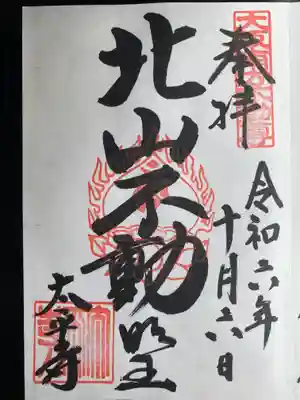 奉拝
令和六年
十月六日
北山不動明王
太平寺